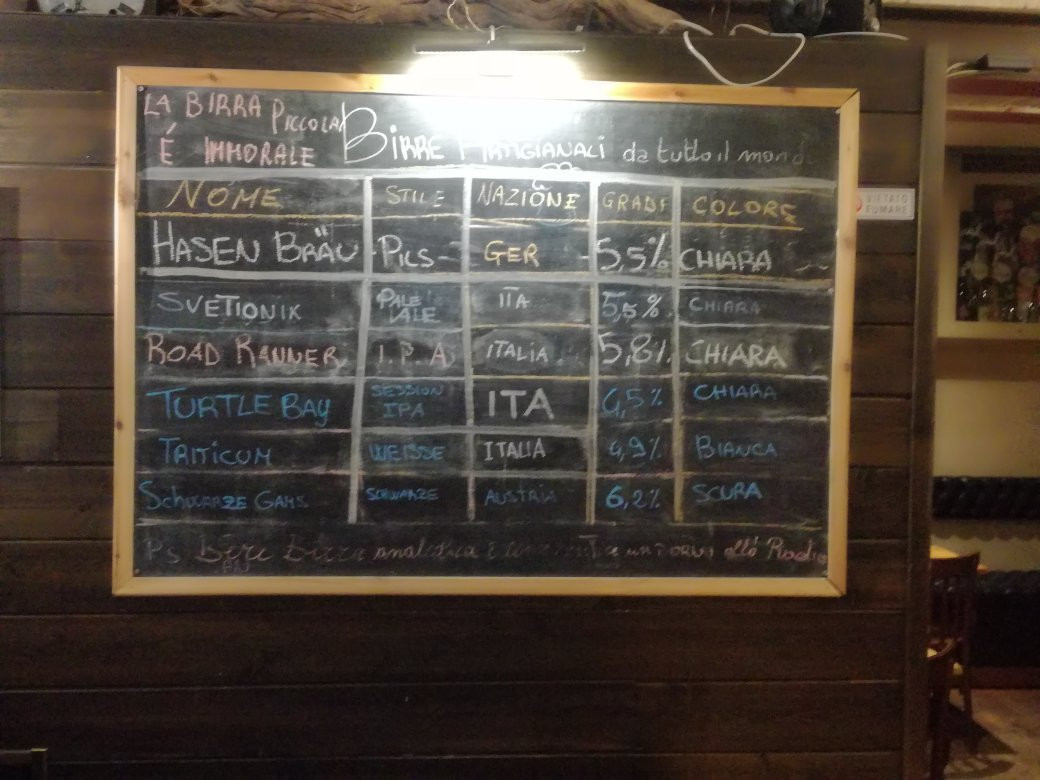 LA BIRRA PICCOLA
É IMMORALE
BIRRE ARTIGIANALI da tutto il mondo
NOME STILE NAZIONE GRADI COLORE
HASEN BRÄU PILS GER 5,5% CHIARA
SVETIONIK PALE ALE ITA 5,5% CHIARA
ROAD RUNNER I.P.A ITALIA 5,8% CHIARA
TURTLE BAY SESSION IPA ITA 4,5% CHIARA
TRITICUM WEISSE ITALIA 4,9% BIANCA
SCHWARZE GAMS SCHWARZE AUSTRIA 6,2% SCURA
PS Bere Birra analcolica È alla Radio
VIETATO
FUMARE